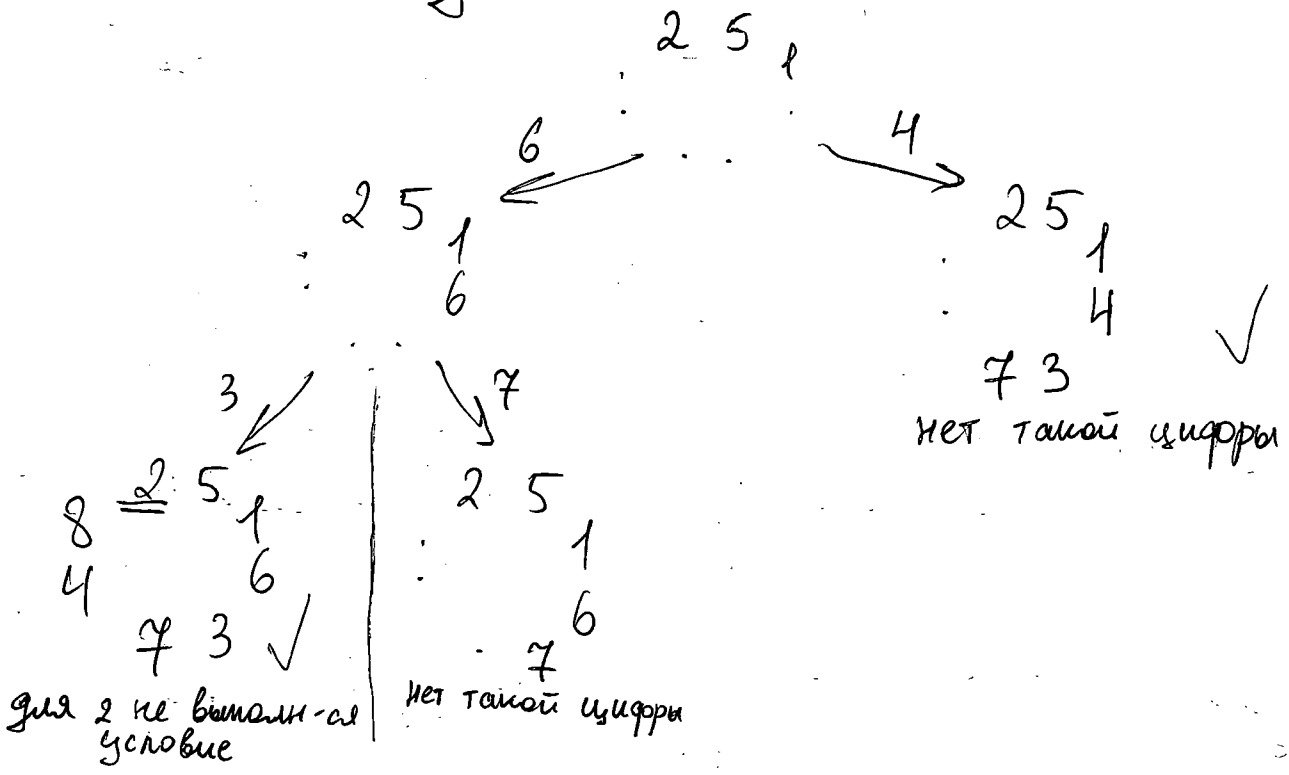 2 5
1
6
4
2 5
1
6
2 5
1
4
7 3
нет такой цифры
3
7
2 5
8
1
4
6
7 3
для 2 не выполн-ся
условие
2 5
1
6
7
нет такой цифры